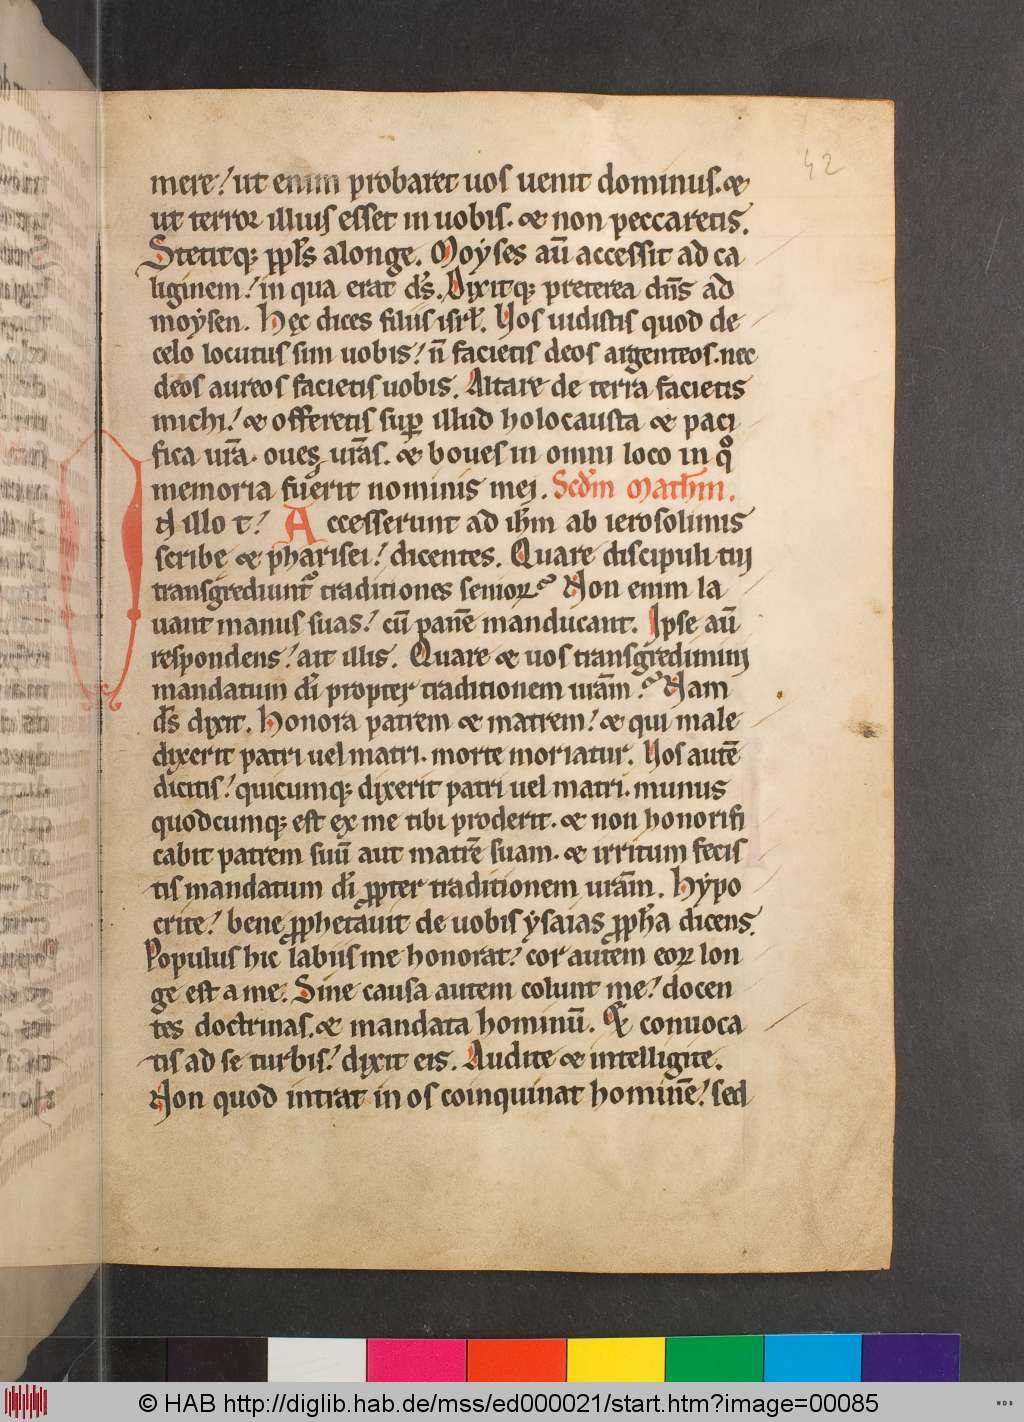 42
mere! ut enim probaret uos uenit dominus. &
ut terror illius esset in uobis. & non peccaretis.
Stetitq; ppl's alonge. Moyses aū accessit ad ca
liginem! in qua erat d's. Dixitq; preterea dn̄s ad
moysen. Hęc dices filiis isrl'. Vos uidistis quod de
celo locutus sim uobis! n̄ facietis deos argenteos. nec
deos aureos facietis uobis. Altare de terra facietis
michi! & offeretis sup illud holocausta & paci
fica ur̄a. oues ur̄as. & boues in omni loco in qͦ
memoria fuerit nominis mei. Scd'm Mathm̄.
IN illo t! Accesserunt ad ih̄m ab ierosolimis
scribe & pharisei! dicentes. Quare discipuli tui
transgrediunt᷑ traditiones senioꝝ? Non enim la
uant manus suas! cū panē manducant. Ipse aū
respondens! ait illis. Quare & uos transgredimini
mandatum di' propter traditionem urām? Nam
d's dixit. Honora patrem & matrem! & qui male
dixerit patri uel matri. morte moriatur. Vos autē
dicitis! quicumq; dixerit patri uel matri. munus
quodcumq; est ex me tibi proderit. & non honorifi
cabit patrem suū aut matrē suam. & irritum fecis
tis mandatum di' ꝓpter traditionem urām. Hypo
crite! bene ꝓphetauit de uobis ysaias ꝓph'a dicens.
Populus hic labiis me honorat! cor autem eoꝝ lon
ge est a me. Sine causa autem colunt me! docen
tes doctrinas. & mandata hominū. Et conuoca
tis ad se turbis! dixit eis. Audite & intelligite.
Non quod intrat in os coinquinat hominē! sed
© HAB http://diglib.hab.de/mss/ed000021/start.htm?image=00085